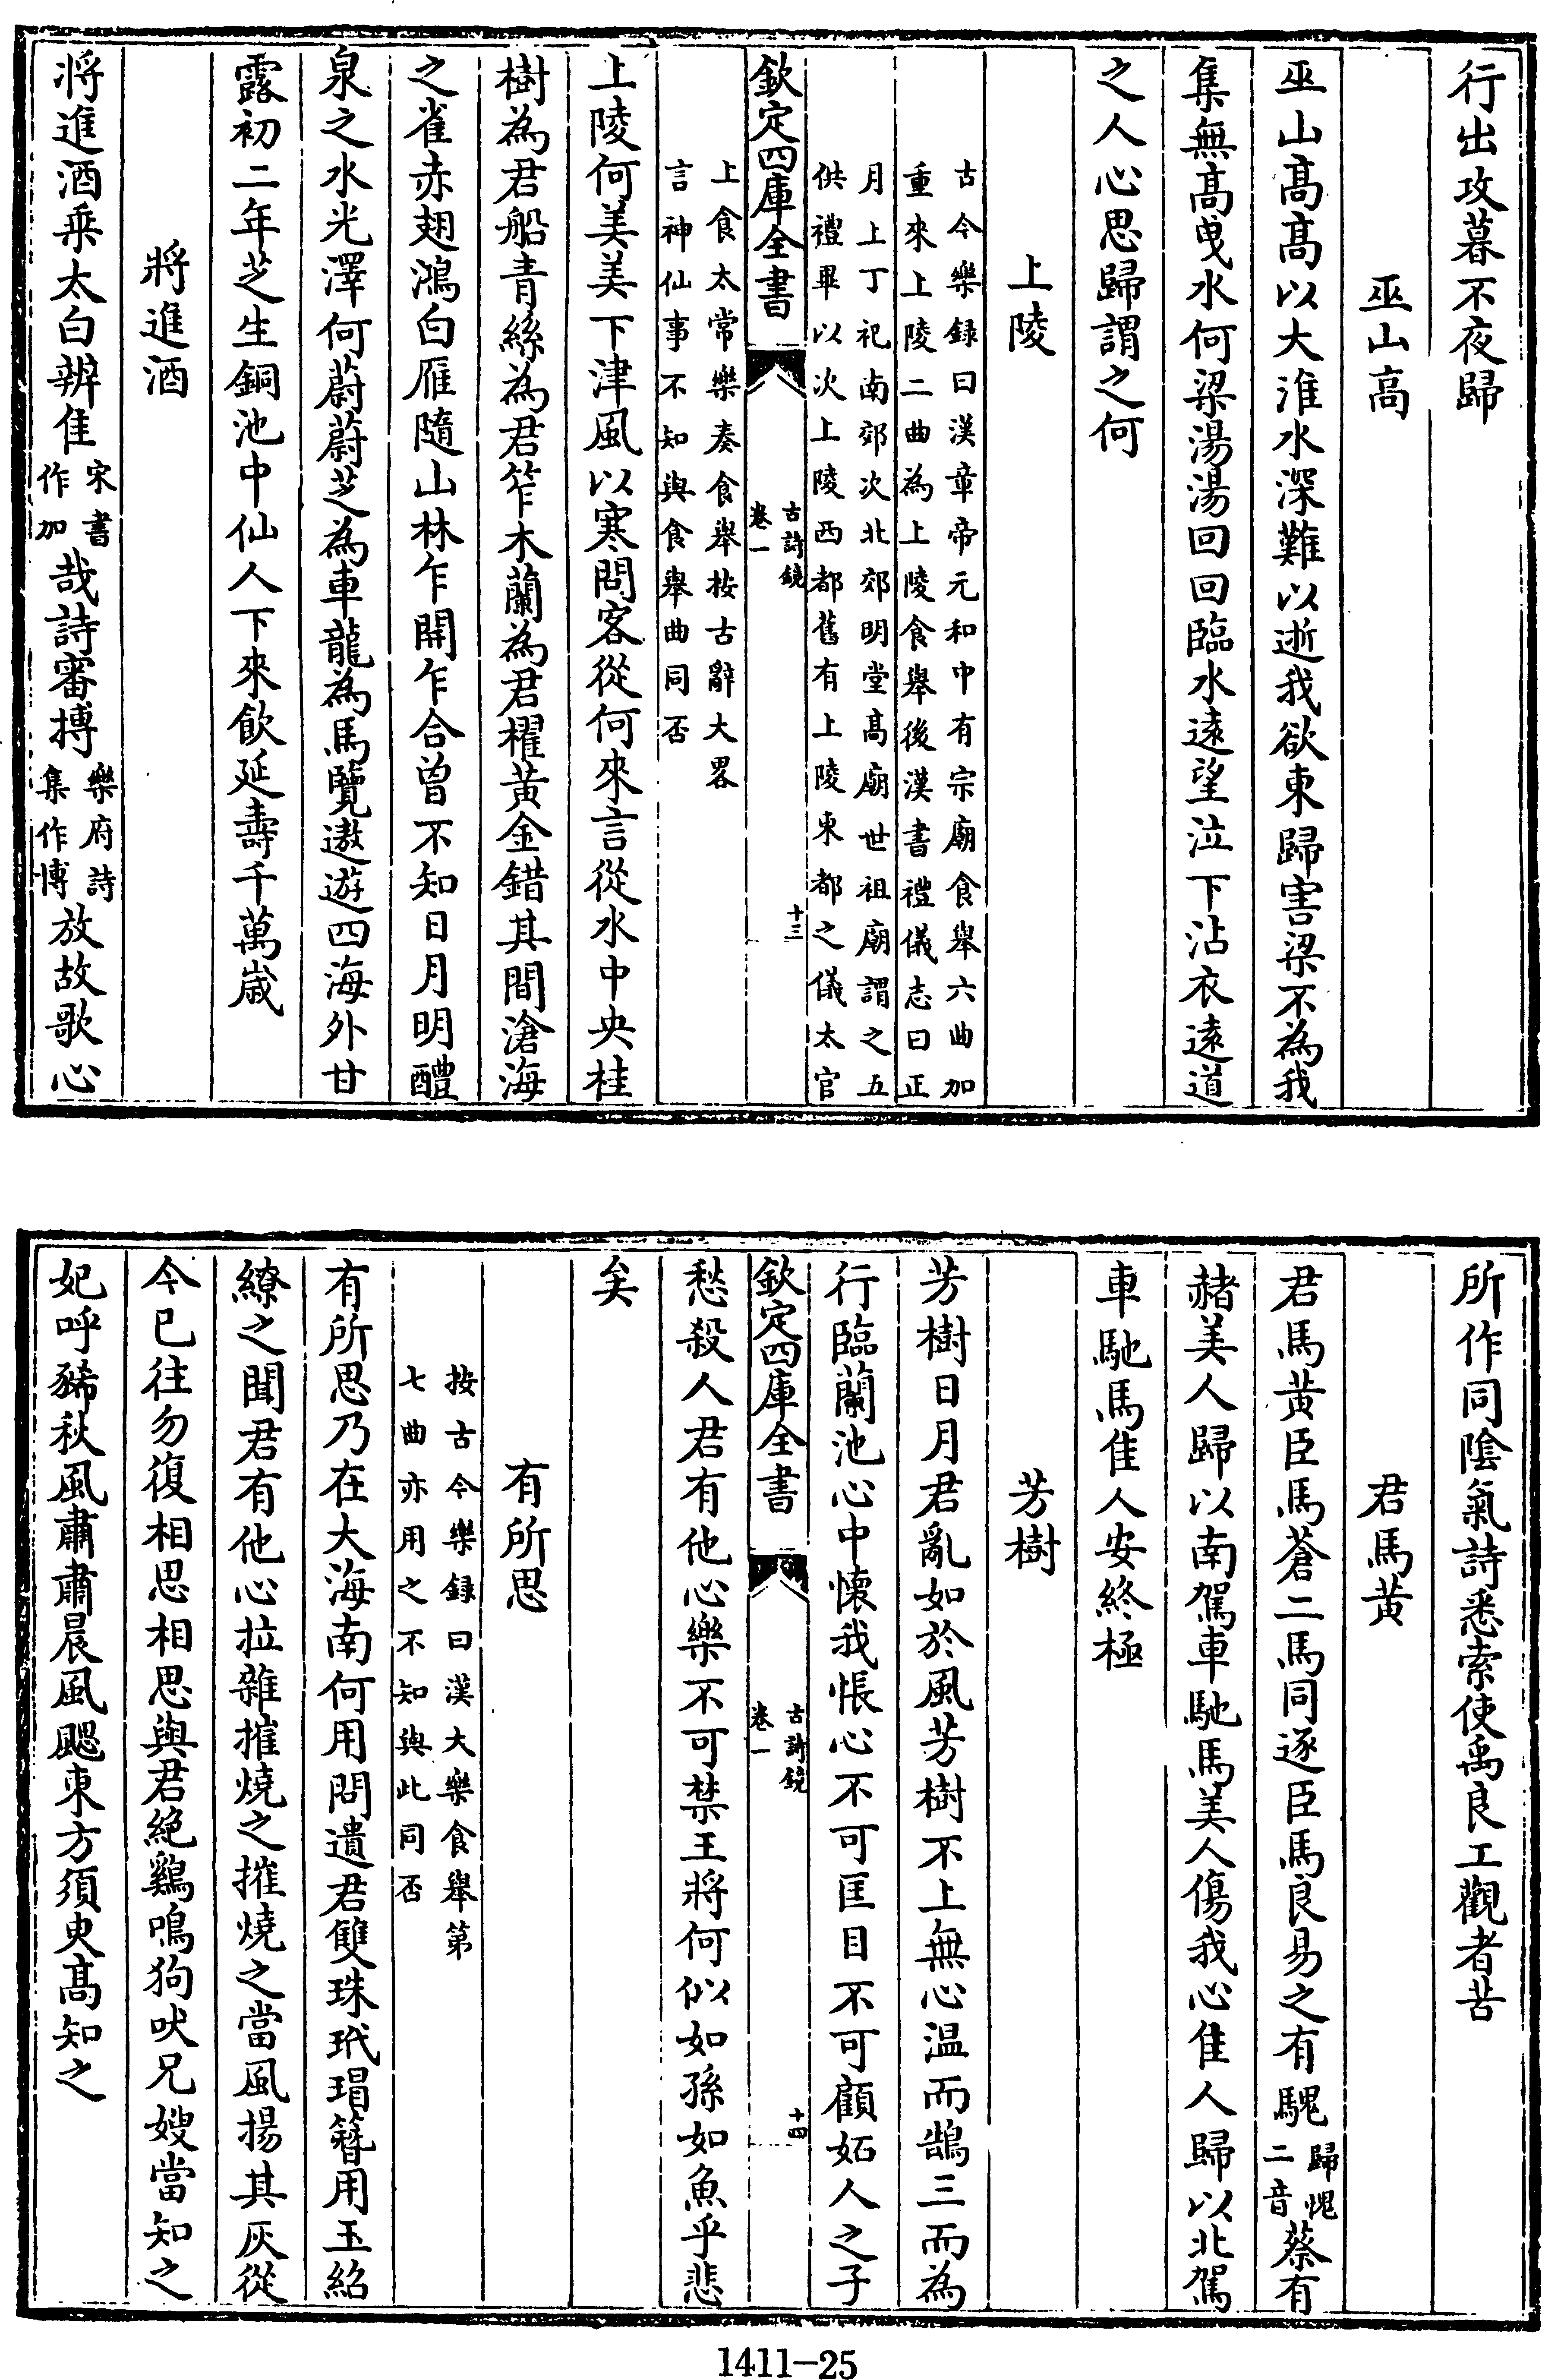 行出攻暮不夜歸
巫山高
巫山髙髙以大淮水深難以逝我欲東歸害梁不為我
集無髙曵水何梁湯湯回回臨水逺望泣下沾衣逺道
之人心思歸謂之何
上陵
古今樂録曰漢章帝元和中有宗廟食舉六曲加
重來上陵二曲為上陵食舉後漢書禮儀志曰正
月上丁祀南郊次北郊明堂髙廟世祖廟謂之五
供禮畢以次上陵西都舊有上陵東都之儀太官
欽定四庫全書
古詩鏡
卷一
十三
上食太常樂奏食舉按古辭大畧
言神仙事不知與食舉曲同否
上陵何美美下津風以寒問客從何來言從水中央桂
樹為君船青絲為君笮木蘭為君櫂黄金錯其間滄海
之雀赤翅鴻白雁隨山林乍開乍合曾不知日月明醴
泉之水光澤何蔚蔚芝為車龍為馬覽遨遊四海外甘
露初二年芝生銅池中仙人下來飲延壽千萬歳
將進酒
將進酒乘太白辨佳宋書作加哉詩審搏樂府詩集作博放故歌心
所作同隂氣詩悉索使禹良工觀者苦
君馬黄
君馬黄臣馬蒼二馬同逐臣馬良易之有騩歸愧二音蔡有
赭美人歸以南駕車馳馬美人傷我心佳人歸以北駕
車馳馬佳人安終極
芳樹
芳樹日月君亂如於風芳樹不上無心温而鵠三而為
行臨蘭池心中懷我悵心不可匡目不可顧妬人之子
欽定四庫全書
古詩鏡
卷一
十四
愁殺人君有他心樂不可禁王將何似如孫如魚乎悲
矣
有所思
按古今樂録曰漢大樂食舉第
七曲亦用之不知與此同否
有所思乃在大海南何用問遺君雙珠玳瑁簪用玉紹
繚之聞君有他心拉雜摧燒之摧燒之當風揚其灰從
今已往勿復相思相思與君絶鷄鳴狗吠兄嫂當知之
妃呼豨秋風肅肅晨風颸東方須臾髙知之
1411—25